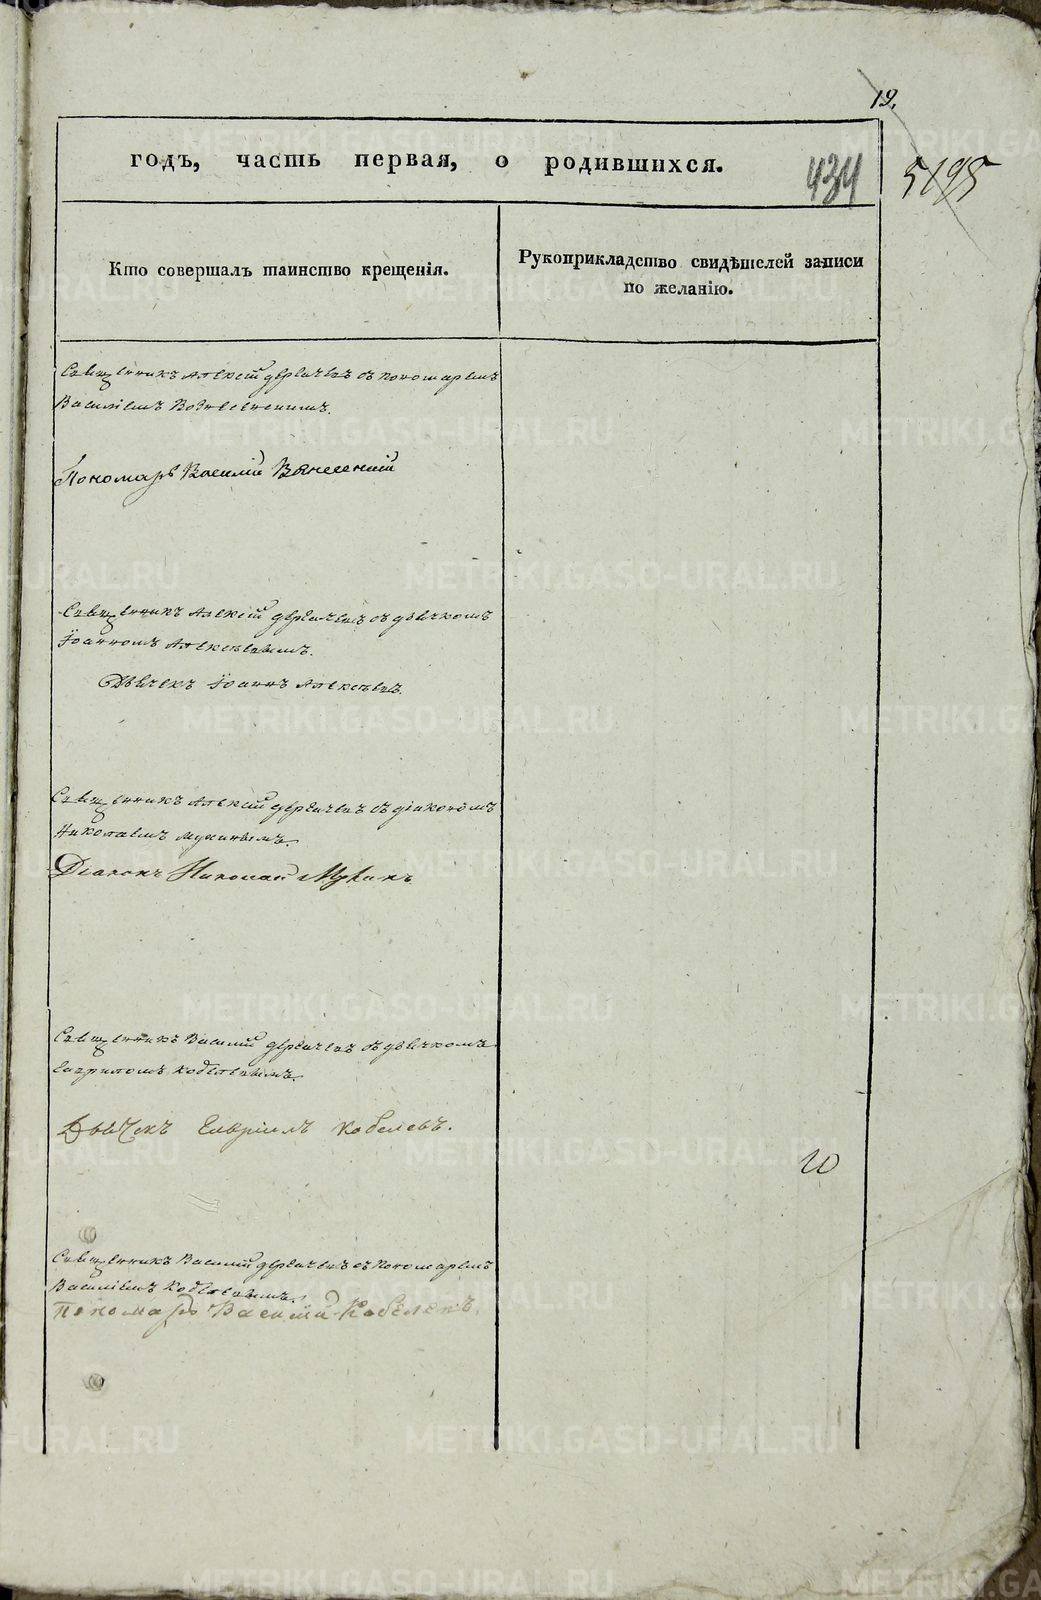 19.
годъ, часть первая, о родившихся.
434
5195
Кто совершалъ таинство крещенія.
Рукоприкладство свидѣтелей записи
по желанію.
Священникъ Алексій с пономаремъ
Василіемъ Вознесенскимъ.
Пономарь Василій
Священникъ Алексій съ дьячкомъ
Іоанномъ Алексѣевымъ.
Дьячекъ Іоаннъ Алексѣевъ.
Священникъ Алексій съ діакономъ
Николаемъ Мухинымъ.
Діаконъ Николай Мухинъ
Священникъ Василій съ дьячкомъ
Гавріиломъ Кобелевымъ.
Дьячекъ Гавріилъ Кобелевъ.
20
Священникъ Василій съ пономаремъ
Василіемъ Кобелевымъ.
Пономарь Василій Кобелевъ.
METRIKI.GASO-URAL.RU